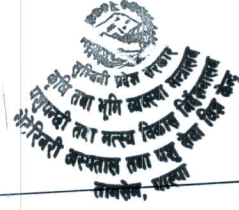 लुम्बिनी प्रदेश सरकार
कृषि तथा भूमि व्यवस्था मन्त्रालय
पशुपन्छी तथा मत्स्य विकास निर्देशनालय
भेटेरिनरी अस्पताल तथा पशु सेवा विज्ञ केन्द्र